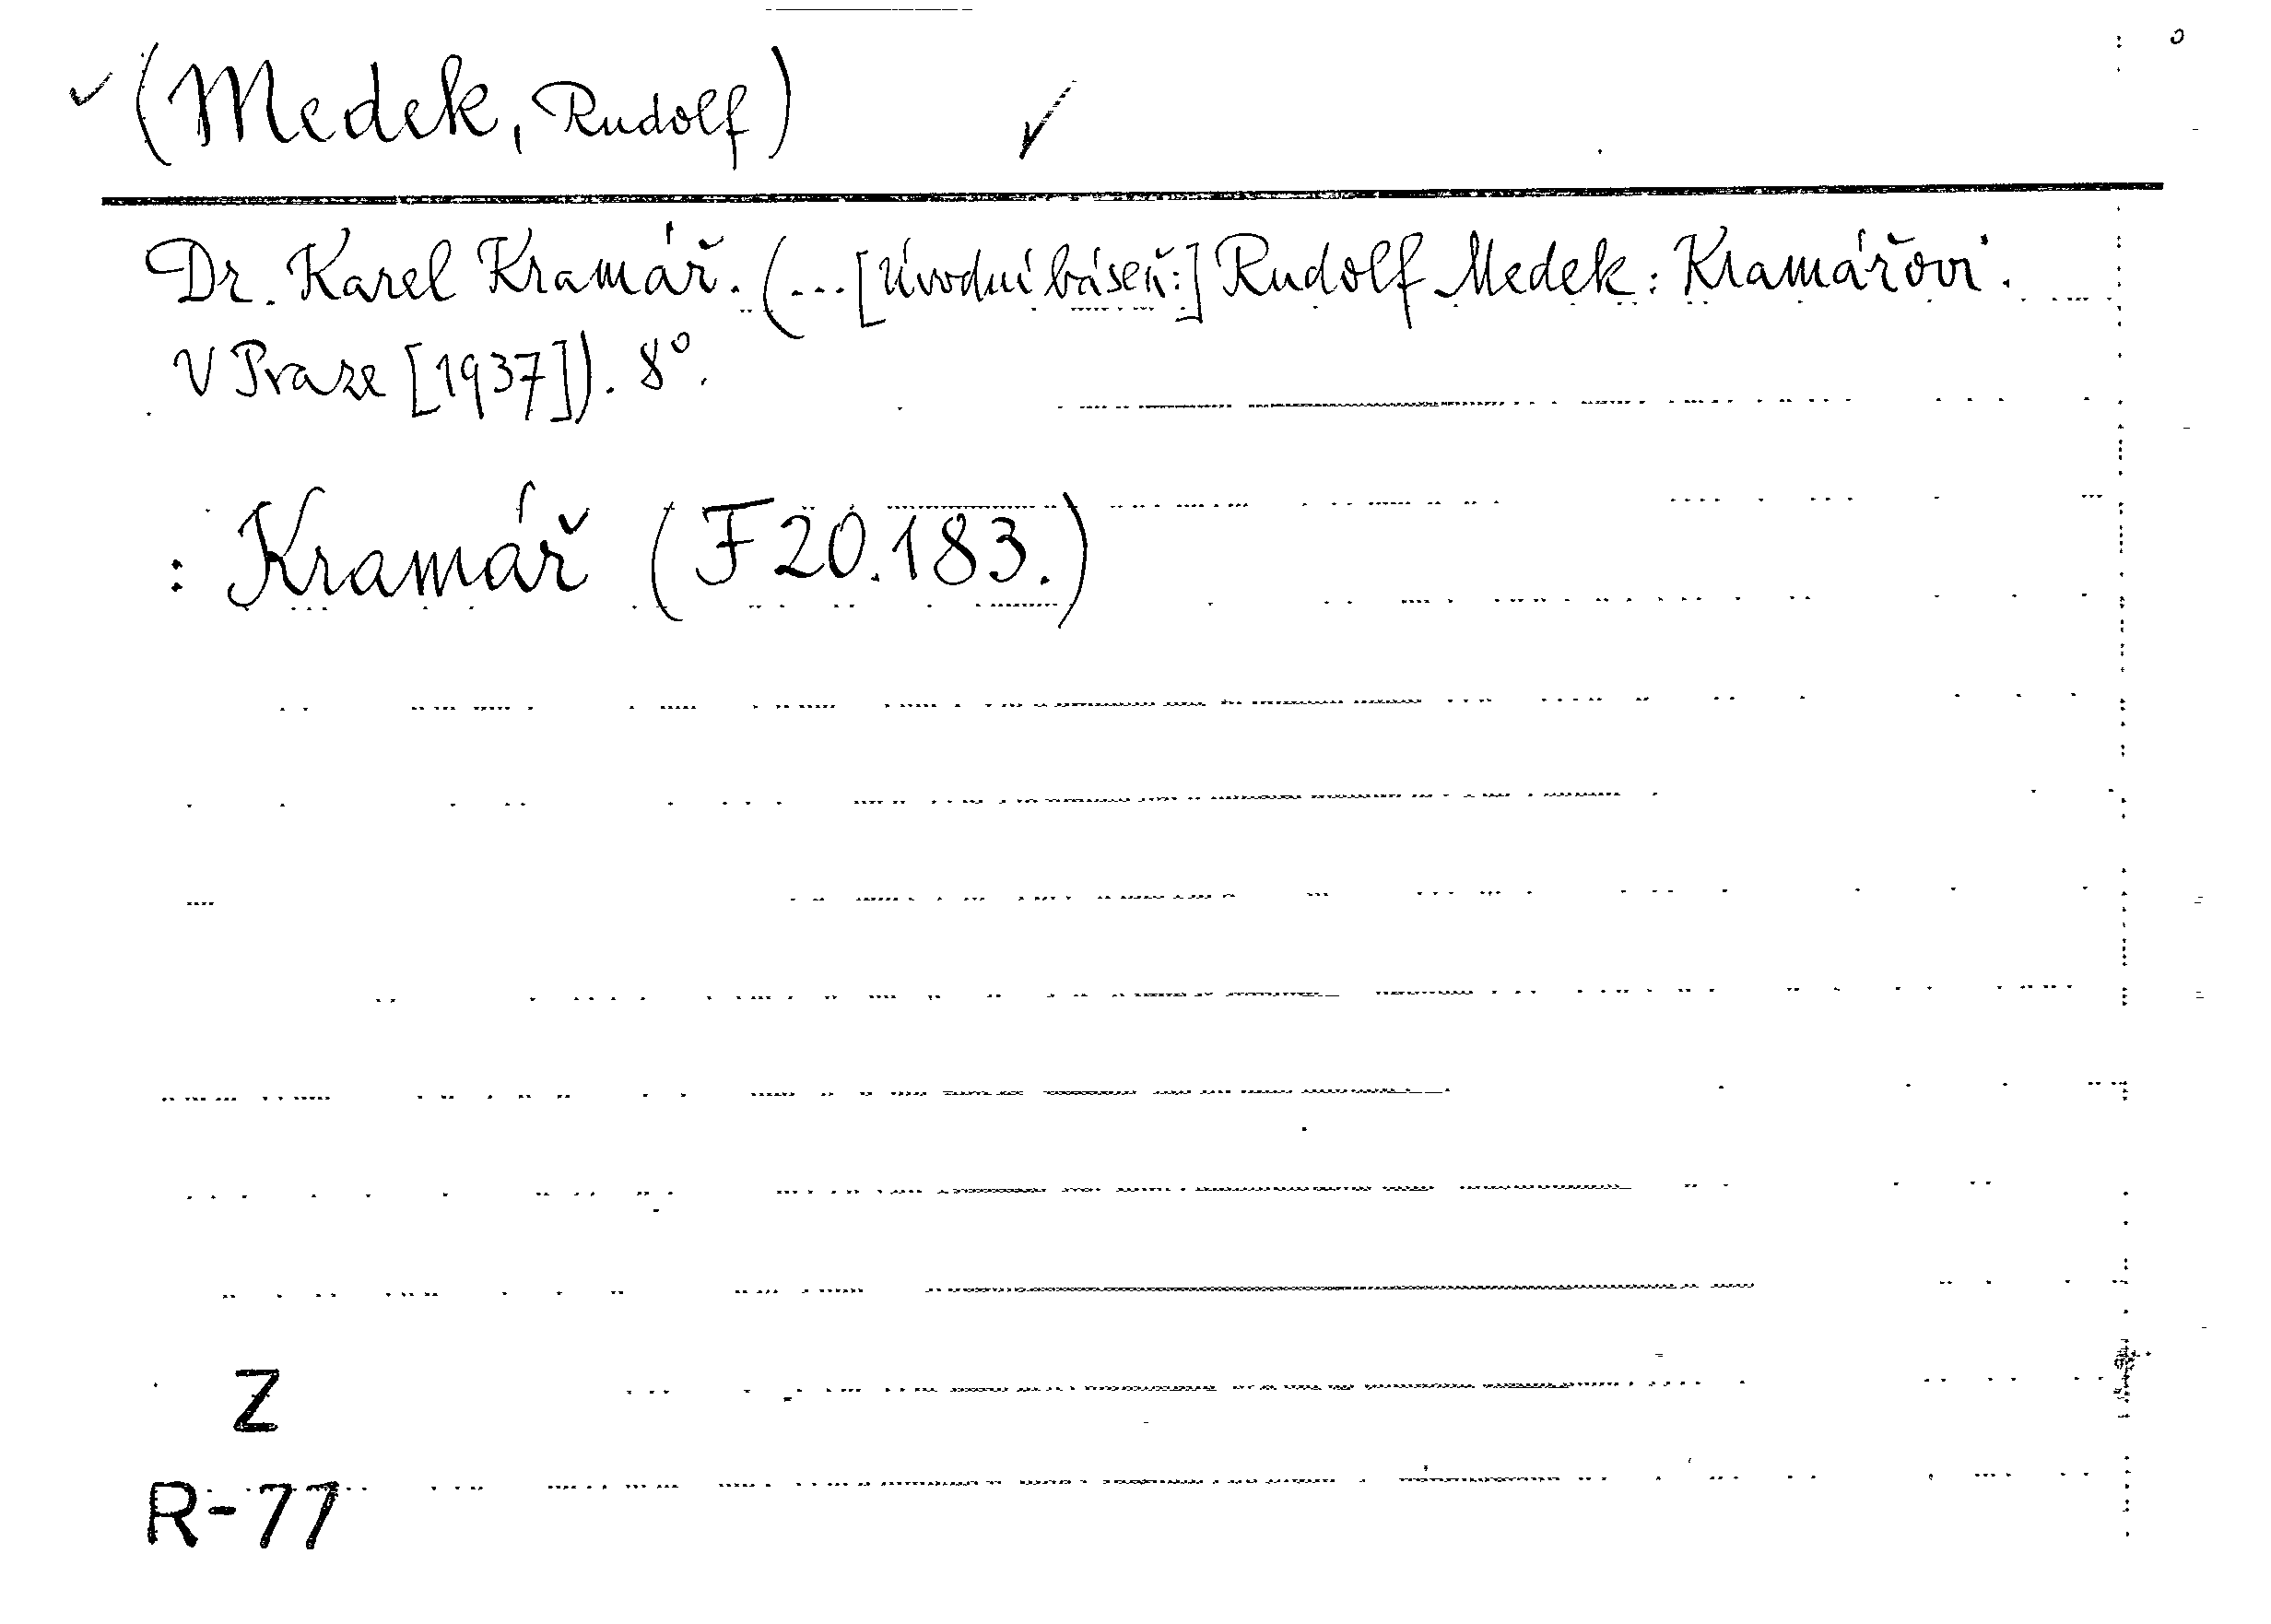 (Medek, Rudolf)
Dr. Karel Kramář. (... [Úvodní báseň:] Rudolf Medek: Kramářovi.
V Praze [1937]). 8°.
: Kramář (F 20.183.)
Z
R-77